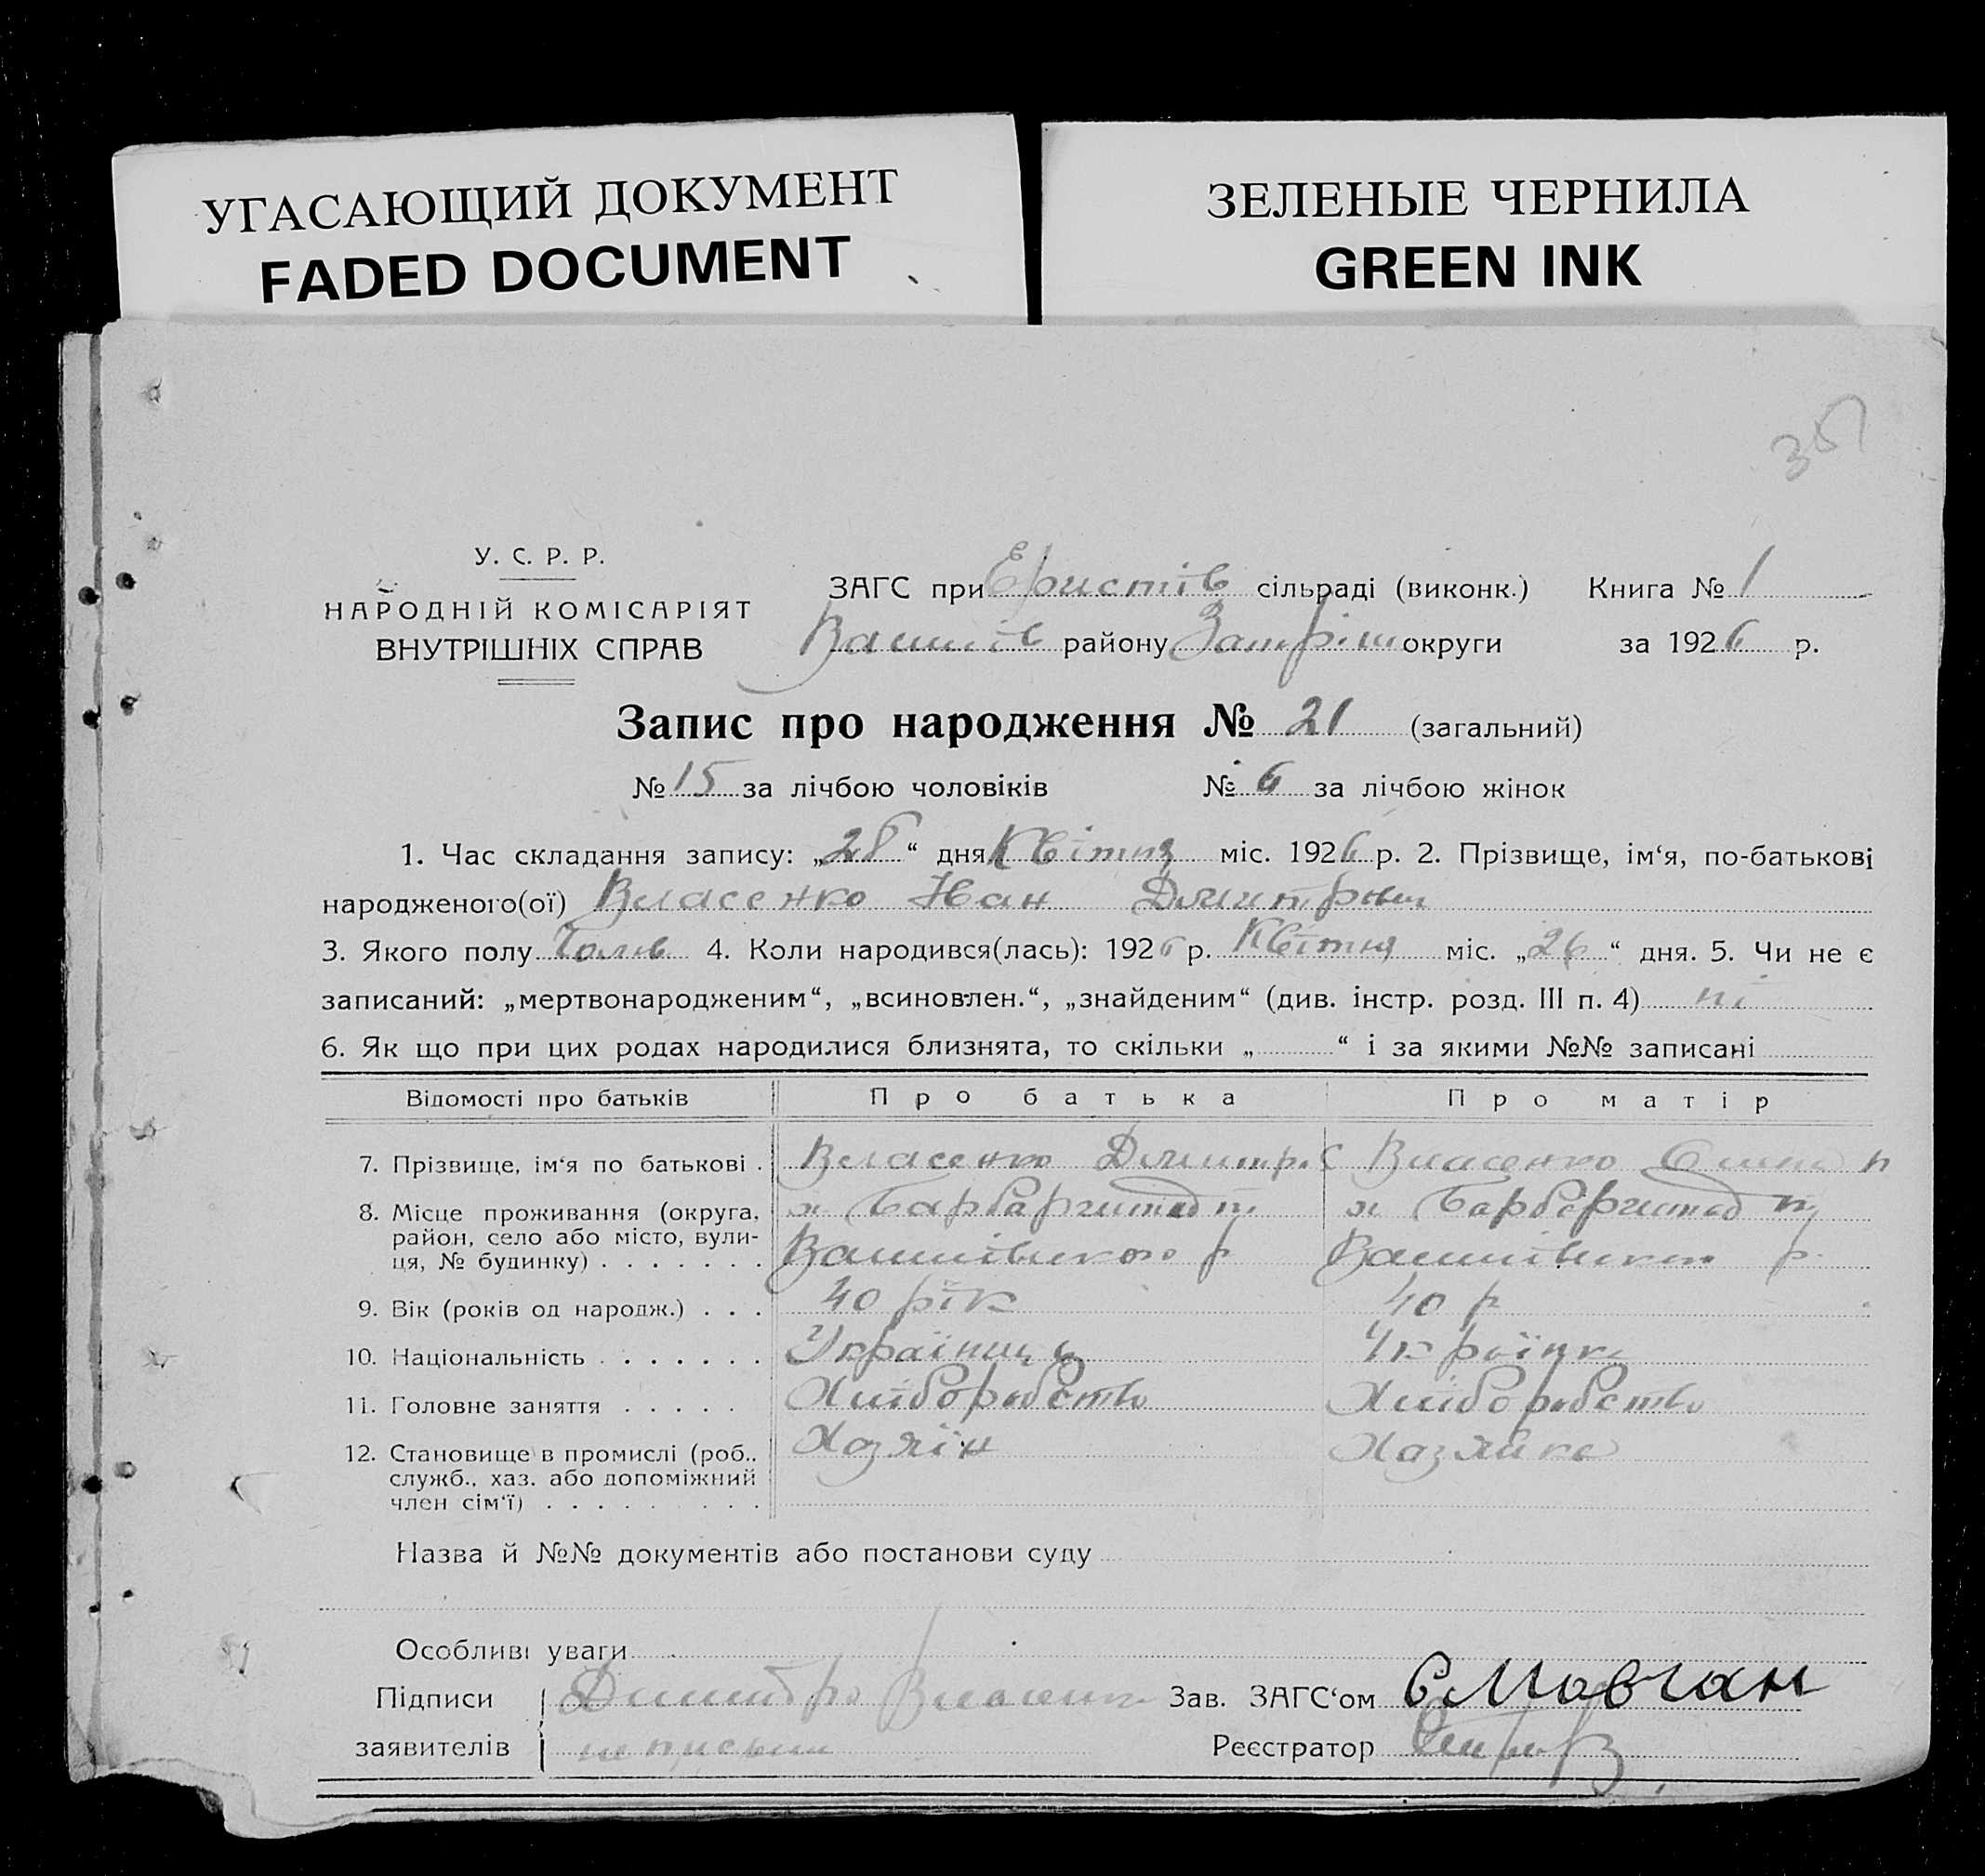 УГАСАЮЩИЙ ДОКУМЕНТ
FADED DOCUMENT
ЗЕЛЕНЫЕ ЧЕРНИЛА
GREEN INK
У. С. Р. Р.
НАРОДНІЙ КОМІСАРІЯТ
ВНУТРІШНІХ СПРАВ
ЗАГС при Єристів сільраді (виконк.) Книга № 1
району округи за 1926 р.
Запис про народження № 21 (загальний)
№ 15 за лічбою чоловіків № 6 за лічбою жінок
1. Час складання запису: „28“ дня Квітня міс. 1926 р. 2. Прізвище, ім‘я, по-батькові
народженого(ої) Власенко Иван Дмитрович
3. Якого полу Чолов 4. Коли народився(лась): 1926 р. Квітня міс. „26“ дня. 5. Чи не є
записаний: „мертвонародженим“, „всиновлен.“, „знайденим“ (див. інстр. розд. III п. 4) ні
6. Як що при цих родах народилися близнята, то скільки „ “ і за якими №№ записані
Відомості про батьків Про батька Про матір
7. Прізвище, ім‘я по батькові . Власенко Дмитро С Власенко
8. Місце проживання (округа,
район, село або місто, вули-
ця, № будинку) . . . . . . .
9. Вік (років од народж.) . . . 40 рік 40 р
10. Національність . . . . . . . Українець Українка
11. Головне заняття . . . . . Хліборобство Хліборобство
12. Становище в промислі (роб.. Хазяїн Хазяйка
служб., хаз. або допоміжний
член сім‘ї) . . . . . . . . .
Назва й №№ документів або постанови суду
Особливі уваги
Підписи Дмитро Власенко Зав. ЗАГС‘ом Є Мовчан
заявителів Реєстратор